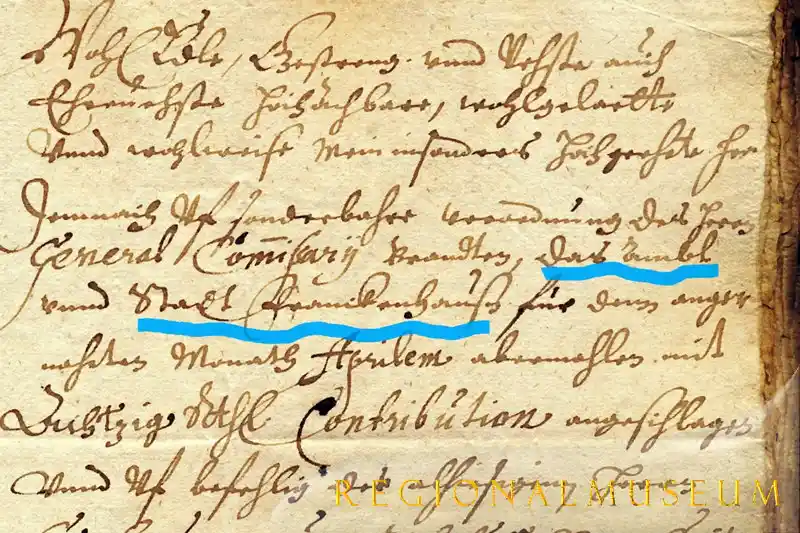 Wohl Edle, Gestreng. vnnd Vehste auch
Ehrnvehste Hochachbare, wohlgelarte
Vnnd wohlweise Mein insonders Hochgeehrte Herr
Demnach Vf sonderbahre verordnung des Herrn
General Commissarij Brandten, das Ambt
vnnd Stadt Franckenhauß für denn anger
nehten Monath Aprilem abermahlen mit
Achtzig Rthl Contribution angeschlagen
Vnnd Vf befehlig des Herrn
REGIONALMUSEUM